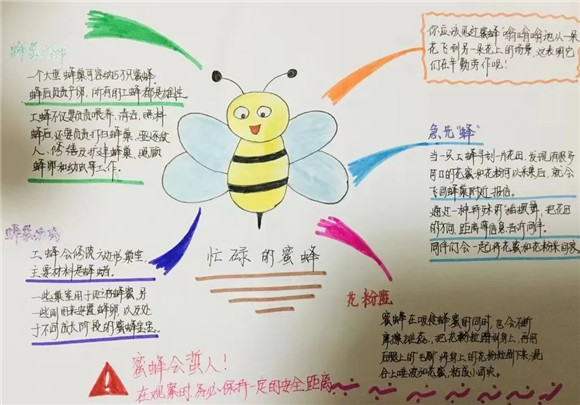 蜂巢内部
一个大型蜂巢可容纳5万只蜜蜂,
蜂后负责产卵,所有的工蜂都是雌性。
工蜂不仅要负责喂养、清洁、照料
蜂后,还要负责打扫蜂巢、驱逐敌
人、修缮及扩建蜂巢、照顾
蜂卵和幼虫等工作。
蜂巢
工蜂会修筑六边形巢室,
主要材料是蜂蜡。
一些巢室用于贮存蜂蜜,另
一些则用来安置蜂卵,以及处
于不同成长阶段的蜜蜂宝宝。
忙碌的蜜蜂
你应该见过蜜蜂嗡嗡嗡地从一朵
花飞到另一朵花上的场景,这表明它
们在辛勤劳作呢!
急先"蜂"
当一只工蜂寻到一片花田,发现有很多
可口的花蜜和花粉可以采集后,就会
飞回蜂巢附近报信。
通过一种特殊的舞蹈,把花田
的不同、距离等信息告诉同伴。
同伴们会一起将花蜜和花粉采回家。
花粉篮
蜜蜂在吸食蜂蜜的同时,也会不断
摩擦,把花粉粒蹭到身上,再用
后腿上的毛刷将身上的花粉粒刷下来,混
合上唾液和花蜜,粘成小团块。
蜜蜂会蜇人!
在观察时,务必保持一定的安全距离